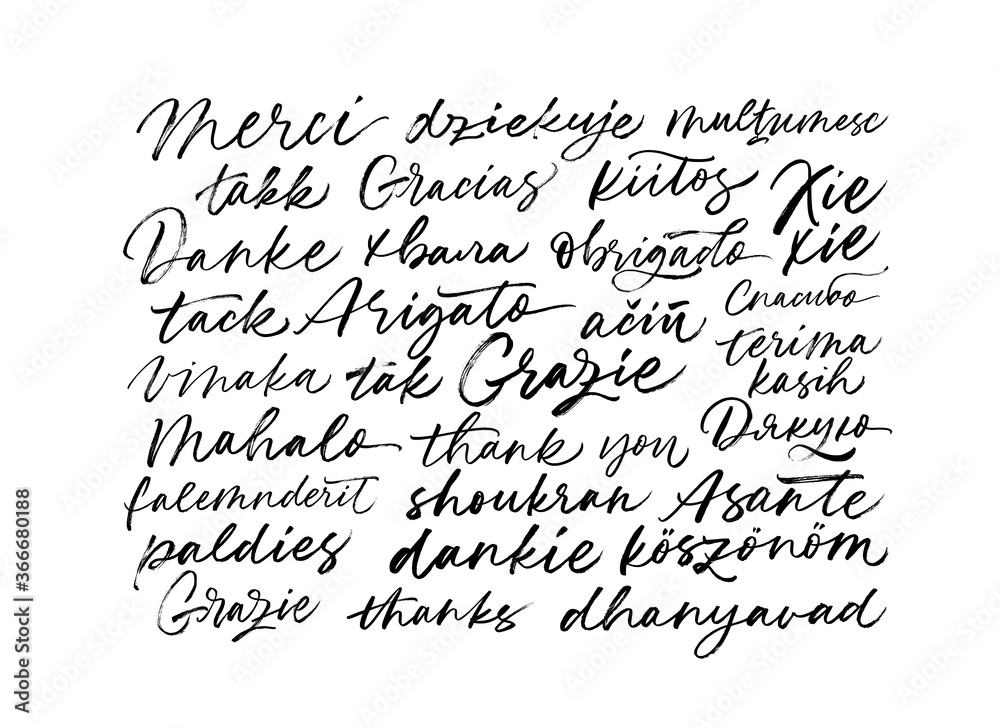 Merci dziekuje mulţumesc
takk Gracias kiitos Xie
Danke хвала obrigado xie
tack Arigato ačiū Спасибо
vinaka tak Grazie terima
kasih
Mahalo thank you Дякую
falemnderit shoukran Asante
paldies dankie köszönöm
Grazie thanks dhanyavad
Adobe Stock | #366680188